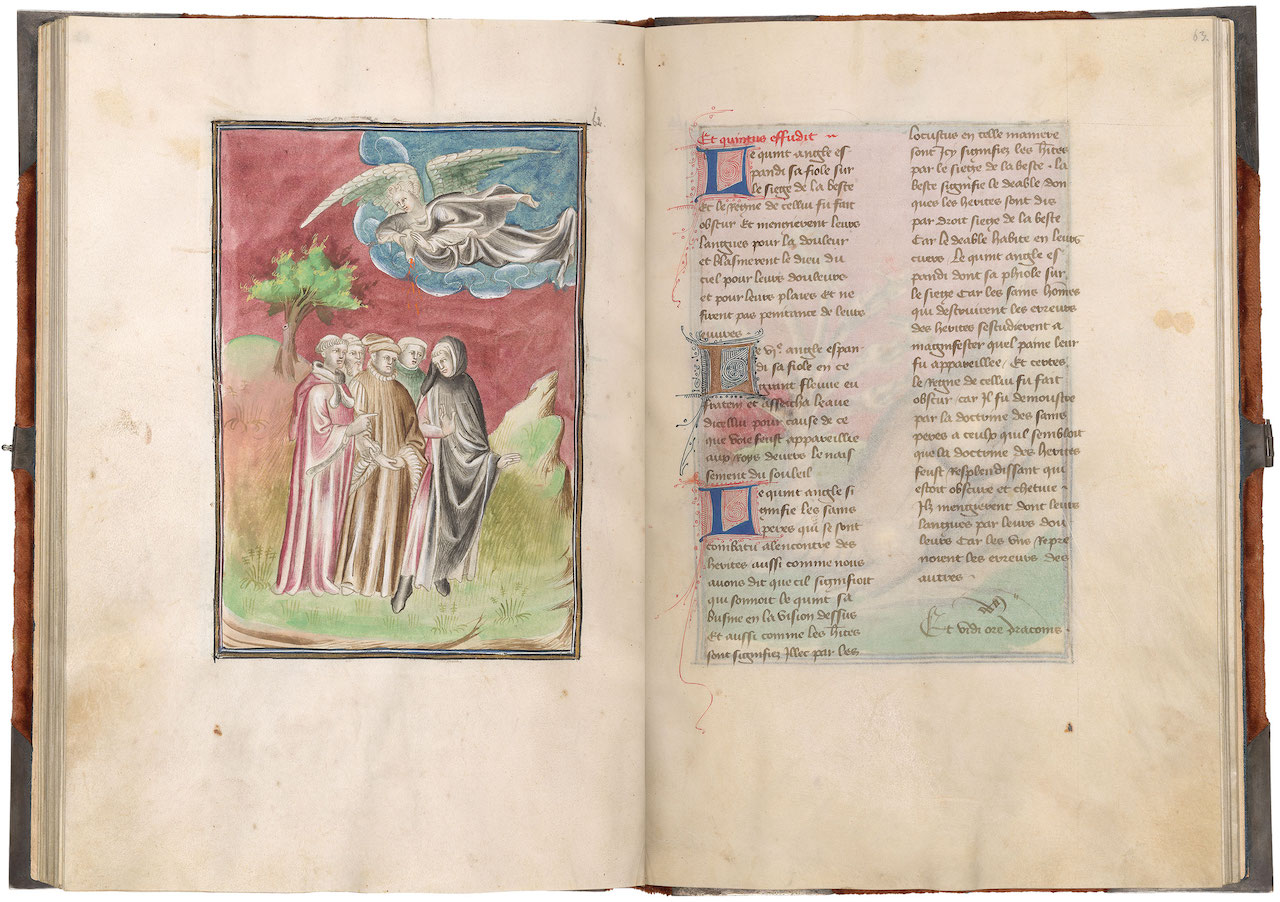 63.
Et quintus effudit
Le quint angle es
pandi sa fiole sur
le siege de la beste
Et le Regne de cellui fu fait
obscur Et mengierent leurs
langues pour la douleur
et blasmerent le dieu du
ciel pour leurs douleurs
et pour leurs plaies Et ne
firent pas penitance de leurs
euures
Le vi.e angle espan
di sa fiole en ce
grant fleuue eu
fraten et assecha leaue
dicellui pour cause de ce
que voie feust appareillee
aux Roys deuers le nais
sement du souleil
Le quint angle si
gnifie les sains
peres qui se sont
combatu alencontre des
herites aussi comme nous
auons dit que cil signifioit
qui sonnoit le quint sa
busine en la vision dessus
Et aussi comme les hites
sont signifiez illec par les
locustes en celle maniere
sont Icy signifiez les hites
par le siege de la beste . la
beste signifie le deable don
ques les herites sont dis
par droit siege de la beste
Car le deable habite en leurs
cuers. Le quint angle es
pandi dont sa phiole sur
le siege Car les sains homes
qui destruirent les erreurs
des herites sestudierent a
magnifester quel paine leur
fu appareillee / Et certes.
le Regne de cellui fu fait
obscur car Il fu demoustre
par la doctrine des sains
peres a ceulx quil sembloit
que la doctrine des herites
feust Resplendissant qui
estoit obscure et chetiue .
Ilz mengierent dont leurs
langues par leurs dou
leurs Car les vns Repre
noient les erreurs des
autres .
Et vidi ore draconis .